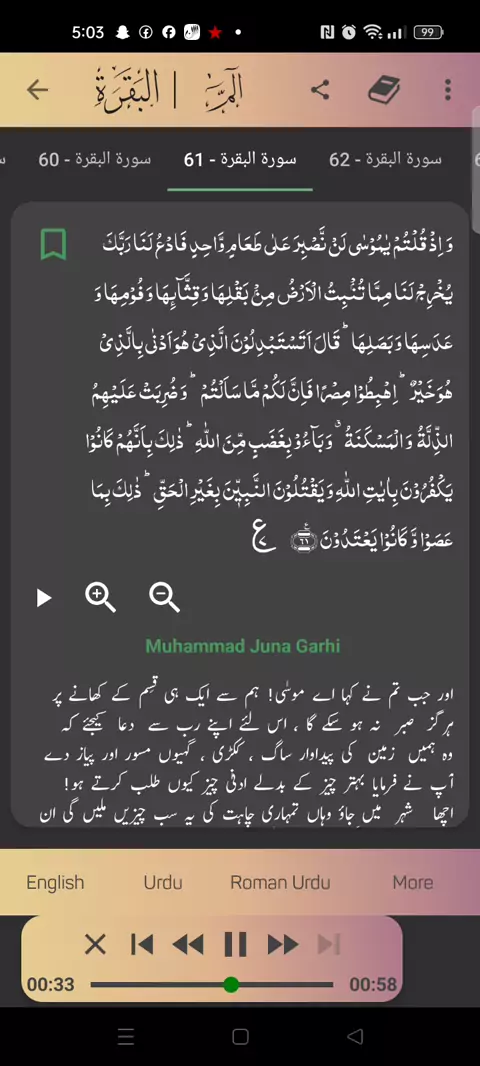 5:03
99
البقرة | الٓمّٓ
سورة البقرة - 60
سورة البقرة - 61
سورة البقرة - 62
وَاِذْ قُلْتُمْ يٰمُوْسٰى لَنْ نَّصْبِرَ عَلٰى طَعَامٍ وَّاحِدٍ فَادْعُ لَنَا رَبَّكَ
يُخْرِجْ لَنَا مِمَّا تُنْۢبِتُ الْاَرْضُ مِنْۢ بَقْلِهَا وَقِثَّآئِهَا وَفُوْمِهَا وَ
عَدَسِهَا وَبَصَلِهَا ؕ قَالَ اَتَسْتَبْدِلُوْنَ الَّذِىْ هُوَ اَدْنٰى بِالَّذِىْ
هُوَ خَيْرٌ ؕ اِهْبِطُوْا مِصْرًا فَاِنَّ لَكُمْ مَّا سَاَلْتُمْ ؕ وَضُرِبَتْ عَلَيْهِمُ
الذِّلَّةُ وَالْمَسْكَنَةُ ۗ وَبَآءُوْ بِغَضَبٍ مِّنَ اللّٰهِ ؕ ذٰلِكَ بِاَنَّهُمْ كَانُوْا
يَكْفُرُوْنَ بِاٰيٰتِ اللّٰهِ وَيَقْتُلُوْنَ النَّبِيّٖنَ بِغَيْرِ الْحَقِّ ؕ ذٰلِكَ بِمَا
عَصَوْا وَّكَانُوْا يَعْتَدُوْنَ ﴿۶۱﴾ ع
Muhammad Juna Garhi
اور جب تم نے کہا اے موسٰی! ہم سے ایک ہی قسم کے کھانے پر
ہرگز صبر نہ ہو سکے گا ، اس لئے اپنے رب سے دعا کیجئے کہ
وہ ہمیں زمین کی پیداوار ساگ ، ککڑی ، گہیوں مسور اور پیاز دے
آپ نے فرمایا بہتر چیز کے بدلے ادنٰی چیز کیوں طلب کرتے ہو!
اچھا شہر میں جاؤ وہاں تمہاری چاہت کی یہ سب چیزیں ملیں گی ان
English
Urdu
Roman Urdu
More
00:33
00:58